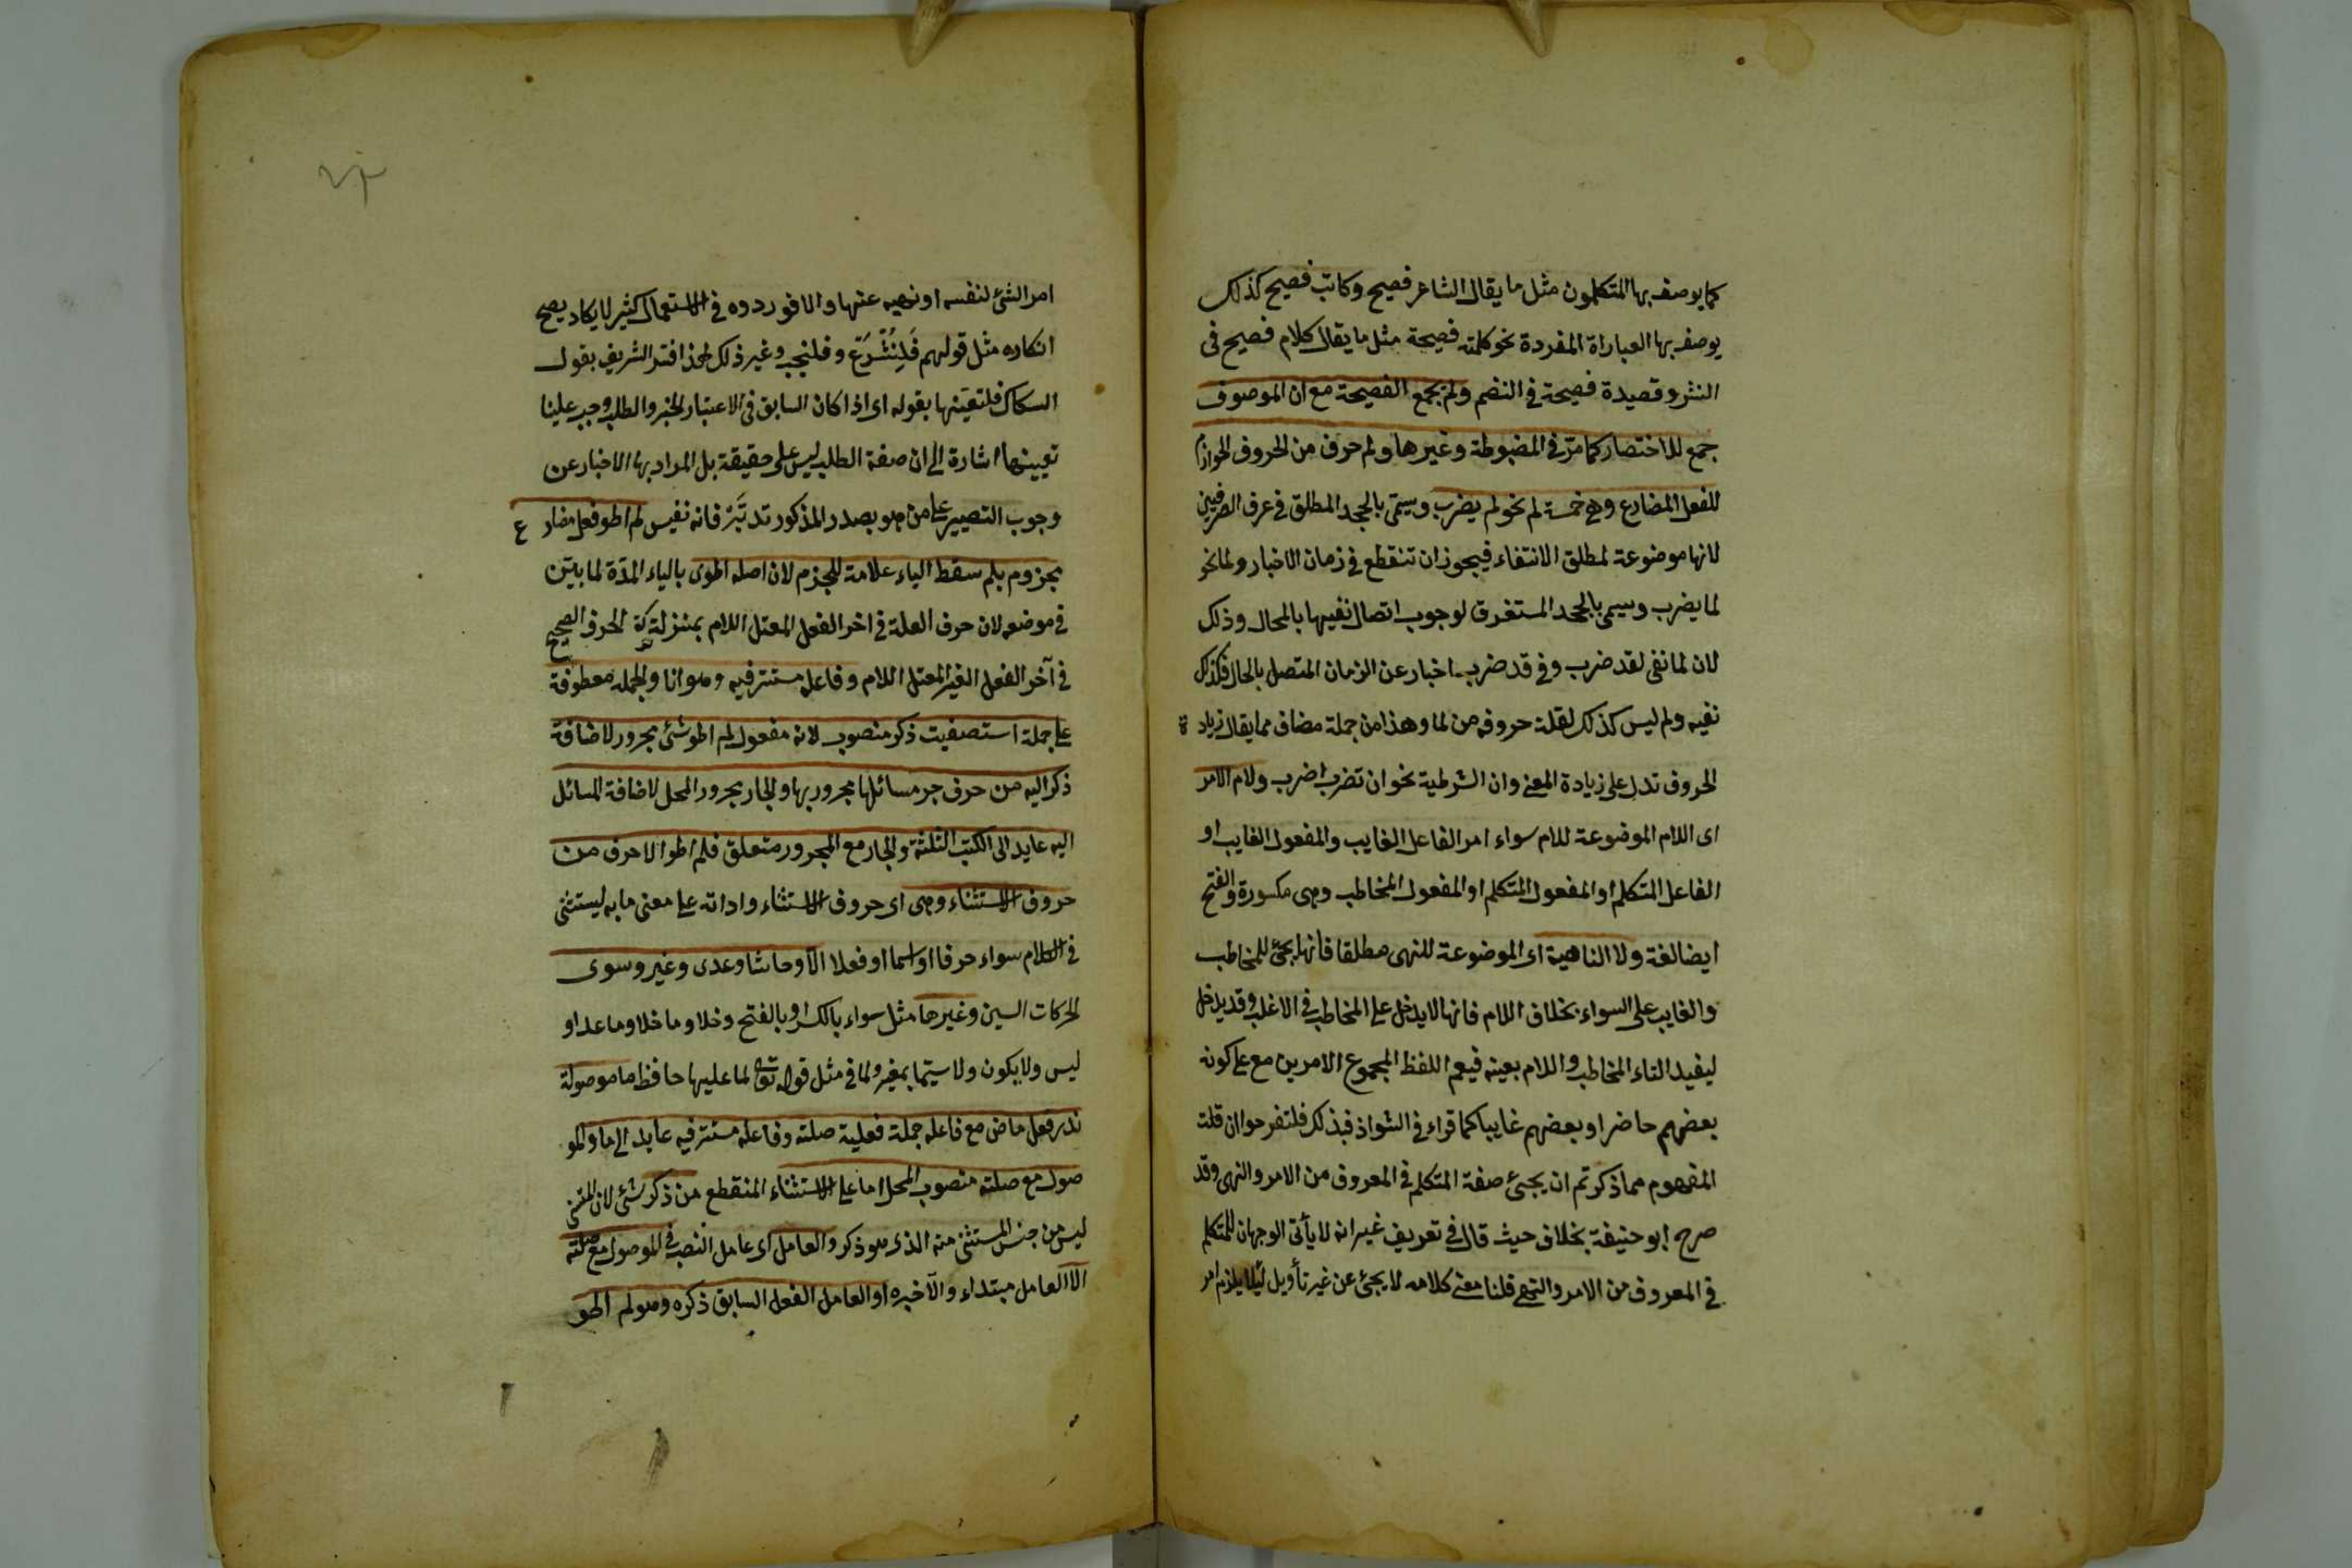 كما يوصف بها المتكلمون مثل ما يقال الشاعر فصيح وكاتب فصيح كذلك
يوصف بها العباراة المفردة نحو كلمته فصيحة مثل ما يقال كلام فصيح فى
النثر وقصيدة فصيحة فى النضم ولم يجمع الفصيحة مع ان الموصوف
جمع للاختصار كما مرّ فى المضبوطة وغيرها ولم حرف من الحروف الجوازم
للفعل المضارع وهى خمسة لم نحو لم يضرب ويسمّى بالجحد المطلق فى عرف الصرفيين
لانها موضوعة لمطلق الانتفاء فيجوز ان تنقطع فى زمان الاخبار ولما نحو
لما يضرب ويسمى بالجحد المستغرق لوجوب اتصال نفيها بالحال وذلك
لان لما نفى لقد ضرب وفى قد ضرب اخبار عن الزمان المتصل بالحال فكذلك
نفيه ولم ليس كذلك لقلة حروفه من لما وهذا من جملة مضاف مما يقال زيادة
الحروف تدل على زيادة المعنى وان الشرطية نحو ان تضرب اضرب ولام الامر
اى اللام الموضوعة للام سواء امر الفاعل الغايب والمفعول الغايب او
الفاعل المتكلم او المفعول المتكلم او المفعول المخاطب وهى مكسورة والفتح
ايضا لغة ولا الناهية اى الموضوعة للنهى مطلقا فانها يجئ للمخاطب
والغايب على السواء بخلاف اللام فانها لا يدخل على المخاطب فى الاغلب وقد يدخل
ليفيد التاء المخاطب واللام بعينه فيعم اللفظ المجموع الامرين مع على كونه
بعضهم حاضرا وبعضهم غايبا كما قراء فى الشواذ فبذلك فلتفرحوا ان قلت
المفهوم مما ذكرتم ان يجئ صفة المتكلم فى المعروف من الامر والنهى وقد
صرح ابو حنيفة بخلاف حيث قال فى تعريف غيرانه لا يأتى الوجهان للمتكلم
فى المعروف من الامر والنهى قلنا معنى كلامه لا يجئ عن غير تأويل لئلا يلزم امر
امر الشئ لنفسه او نهيه عنها والا فوردوه فى الاستعمال كثير لا يكاد يصح
انكاره مثل قولهم فلنشرع وفلنجب وغير ذلك لهذا فسّر الشريف بقول
السكاكى فلتعيّنها بقوله اى اذا كان السابق فى الاعتبار الخبر والطلب وجب علينا
تعيينها اشارة الى ان صفة الطلب ليس على حقيقة بل المراد بها الاخبار عن
وجوب التصيير على من هو بصدر المذكور تدبّر فانه نفيس لم اطو فعل مضارع
مجزوم بلم سقط الياء علامة للجزم لان اصله اطوى بالياء المدّة لما بيّن
فى موضعه لان حرف العلة فى اخر الفعل المعتل اللام بمنزلة حركة الحرف الصحيح
فى آخر الفعل الغير المعتل اللام وفاعله مستتر فيه وهو انا والجملة معطوفة
على جملة استصفيت ذكر منصوب لانه مفعول لم اطو شئ مجرور لاضافة
ذكر اليه من حرف جر مسائلها مجرور بها والجار مجرور المحل لاضافة المسائل
اليه عايد الى الكتب الثلثة والجار مع المجرور متعلق فلم اطو الا حرف من
حروف الاستثناء وهى اى حروف الاستثناء واداته على معنى ما به ليستثنى
فى الكلام سواء حرفا او اسما او فعلا الّا وحاشا وعدى وغير وسوى
لحركات السين وغيرها مثل سواء بالكسر او بالفتح وخلا وما خلا وما عدا و
ليس ولا يكون ولا سيّما بمغير ولما فى مثل قوله تعالى لما عليها حافظ ما موصولة
ندر فعل ماض مع فاعله جملة فعلية صلته وفاعله مستتر فيه عايد الى ما والمو
صول مع صلته منصوب المحل اما على الاستثناء المنقطع من ذكر شئ لان المستثنى
ليس من جنس المستثنى منه الذى هو ذكر والعامل اى عامل النصب فى الموصول مع صلته
الا العامل مبتداء والّا خبره او العامل الفعل السابق ذكره وهو لم اطو